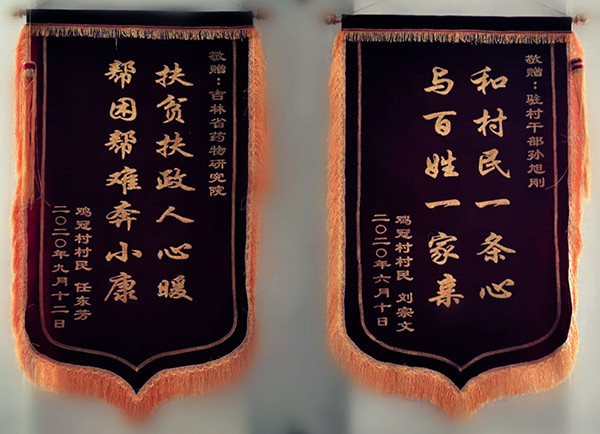 敬赠：吉林省药物研究院
扶贫扶政人心暖
帮困帮难奔小康
鸡冠村村民 任东芳
二〇二〇年九月十二日
敬赠：驻村干部孙旭刚
和村民一条心
与百姓一家亲
鸡冠村村民 刘宗文
二〇二〇年六月十日